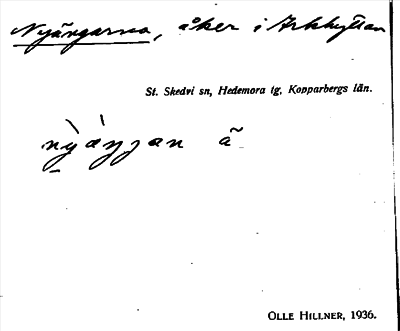 Nyängarna, åker i Arkhyttan
St. Skedvi sn, Hedemora tg, Kopparbergs län.
OLLE HILLNER, 1936.